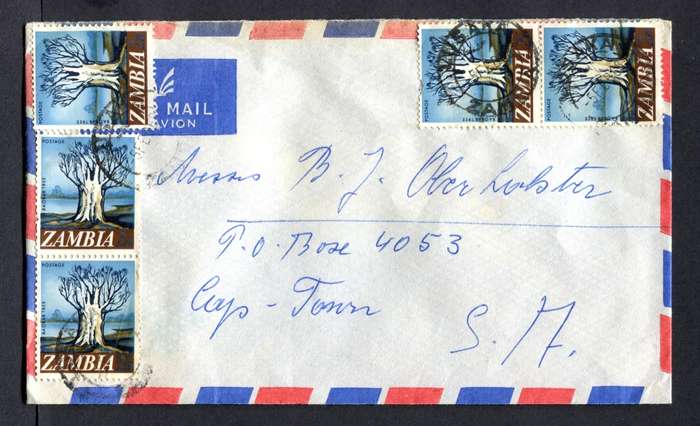 POSTAGE
BAOBAB TREE
ZAMBIA
POSTAGE
BAOBAB TREE
ZAMBIA
POSTAGE
BAOBAB TREE
ZAMBIA
MAIL
AVION
POSTAGE
BAOBAB TREE
ZAMBIA
POSTAGE
BAOBAB TREE
ZAMBIA
Messrs B. J. Ober
P.O. Boxe 4053
Cap-Town
S. A.